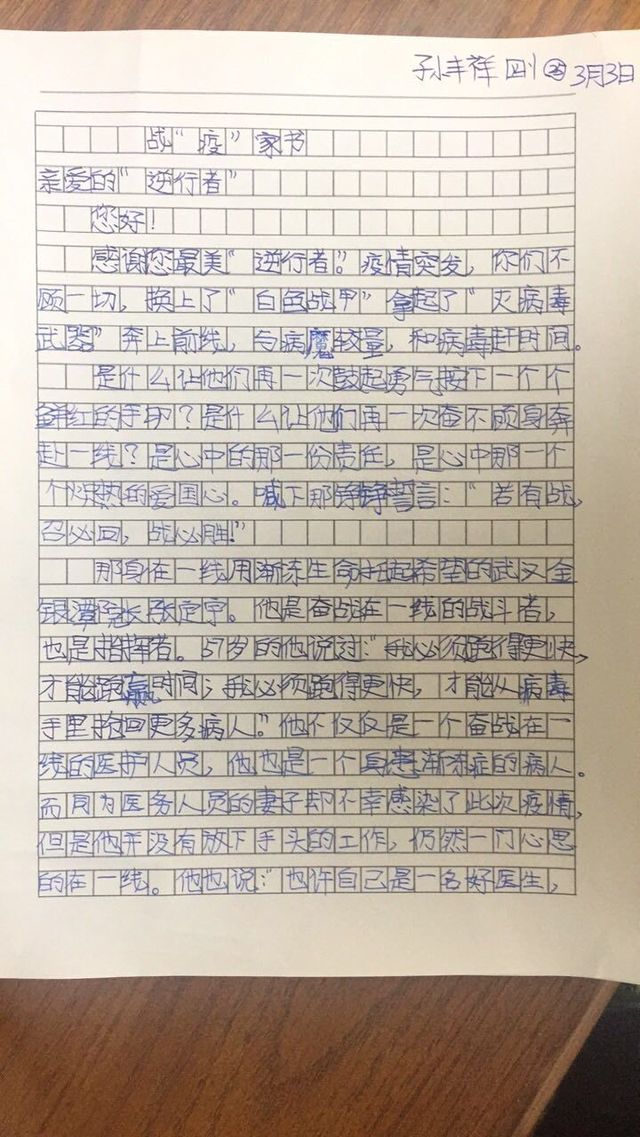 孙丰祥 四 3月3日
战“疫”家书
亲爱的“逆行者”
您好！
感谢您最美“逆行者”。疫情突发，你们不
顾一切，换上了“白色战甲”拿起了“灭病毒
武器”奔上前线，与病魔较量，和病毒赶时间。
是什么让他们再一次鼓起勇气按下一个个
鲜红的手印？是什么让他们再一次奋不顾身奔
赴一线？是心中的那一份责任，是心中那一个
个炽热的爱国心。喊下那铮铮誓言：“若有战，
召必回，战必胜！”
那身在一线用渐冻生命托起希望的武汉金
银潭院长张定宇。他是奋战在一线的战斗者，
也是指挥者。57岁的他说过：“我必须跑得更快，
才能跑赢时间；我必须跑得更快，才能从病毒
手里抢回更多病人。”他不仅仅是一个奋战在一
线的医护人员，他也是一个身患渐冻症的病人。
而同为医务人员的妻子却不幸感染了此次疫情，
但是他并没有放下手头的工作，仍然一门心思
的在一线。他也说：“也许自己是一名好医生，